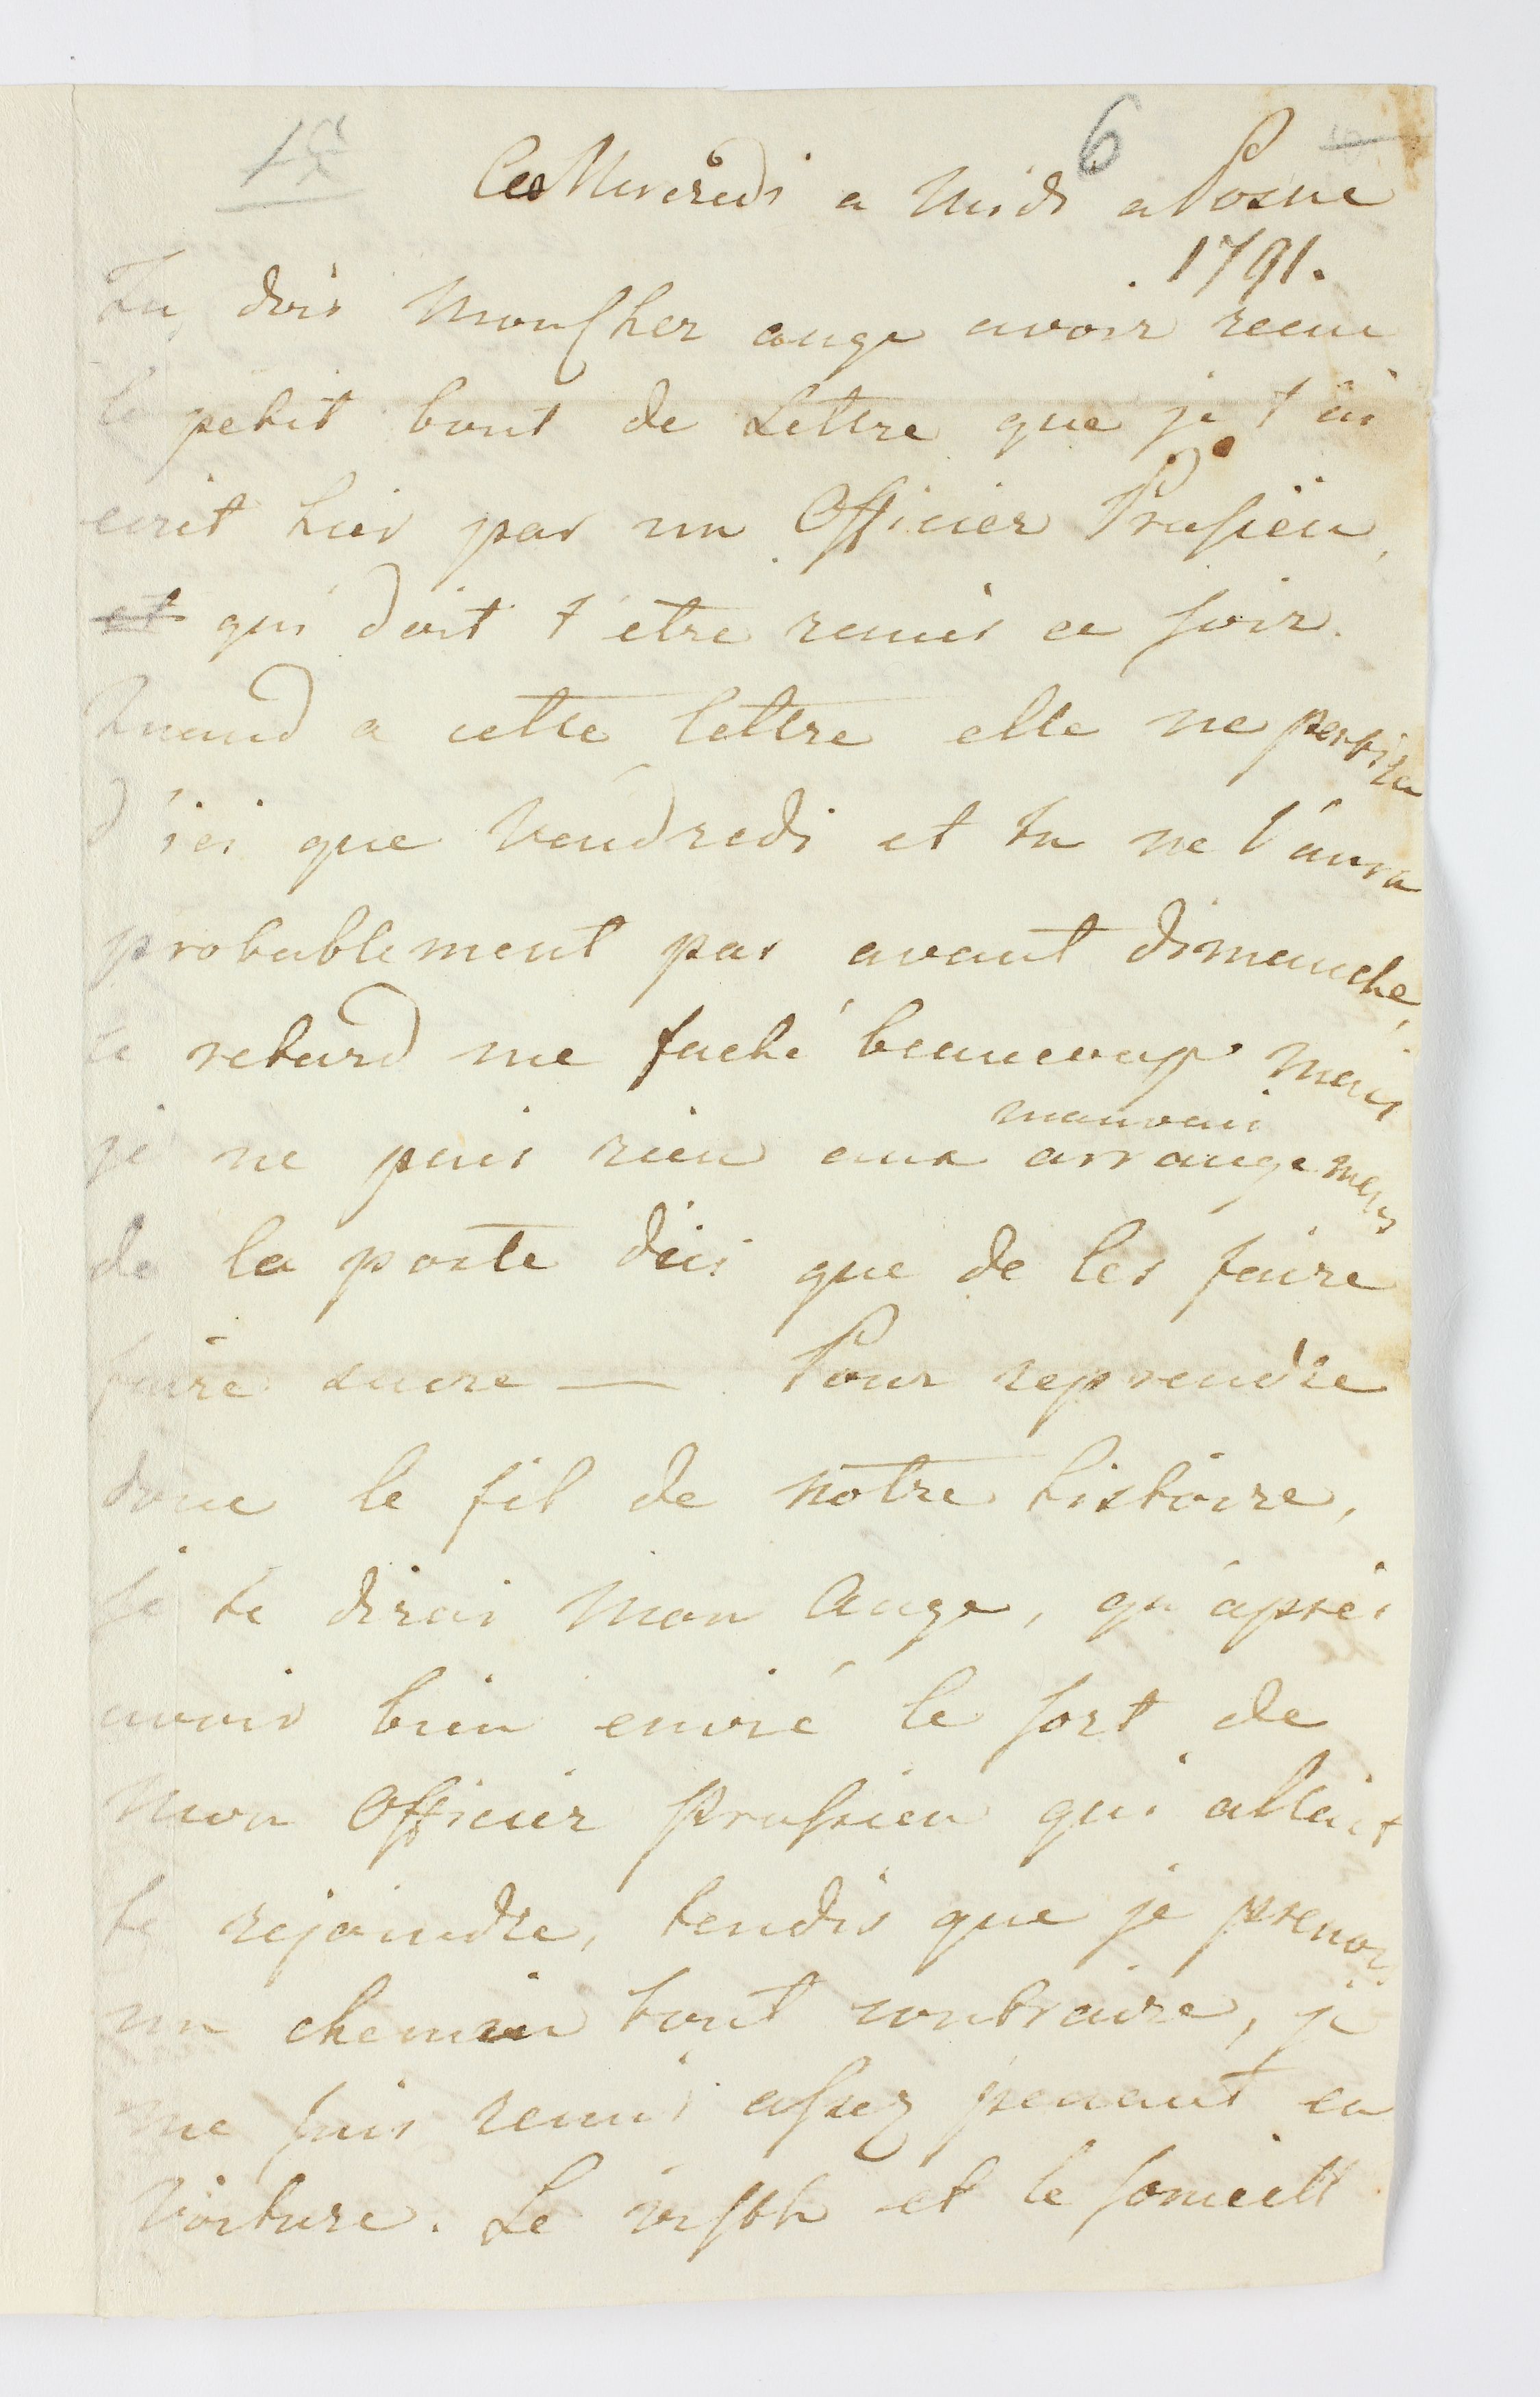 6
Ce Mercredi a Midi a Posne
1791.
Tu dois Mon Cher ange avoir recu
le petit bout de Lettre que je t'ai
ecrit hier par un Officier Prussien,
et qui doit t'etre remis ce soir.
Quand a cette lettre elle ne partira
d'ici que Vendredi et tu ne l'aura
probablement pas avant dimanche,
ce retard me fache beaucoup mais
mauvais
je ne puis rien aux arrangemens
de la poste d'ici que de les faire
faire encore — Pour reprendre
donc le fil de notre histoire,
je te dirai Mon Ange, qu'après
avoir bien envié le sort de
Mon Officier prussien qui allait
te rejoindre, tendis que je prenois
un chemin tout contraire, je
me suis remis assez penaut en
Voiture. Le et le someill